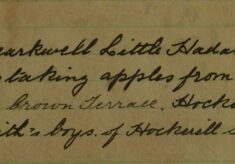 Little Hada
taking apples from
Crown Terrace. Hocke
ith's boys. of Hockerill s